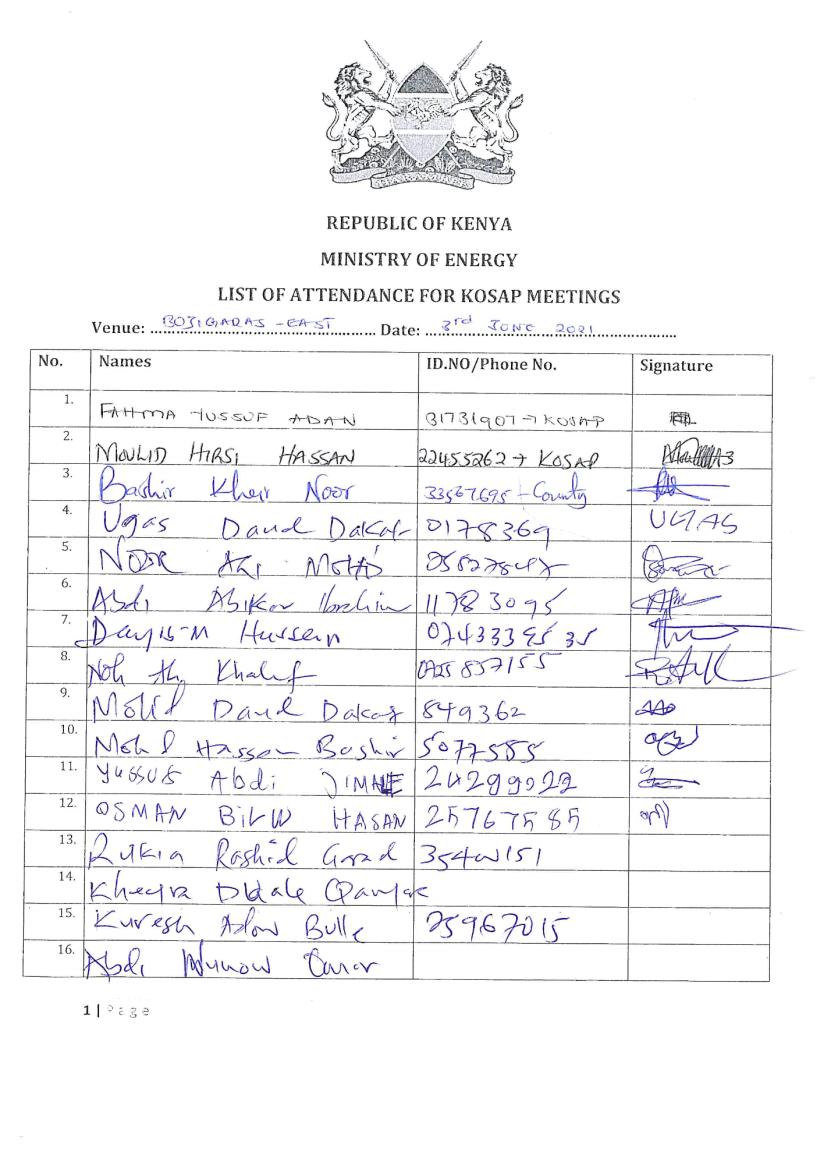 REPUBLIC OF KENYA
MINISTRY OF ENERGY
LIST OF ATTENDANCE FOR KOSAP MEETINGS
Venue: BOJIGARAS -EAST Date: 3rd JUNE 2021
No. Names ID.NO/Phone No. Signature
1. FAHMA YUSSUF ADAN 31731907 → KOSAP
2. MOULID HIRSI HASSAN 22455262 → KOSAP
3. Bashir Kheir Noor 33567695 - County
4. Ugas Daud Dakat 0178369 UGAS
5. NOOR Ali MOHD
6. Abdi Abikar Ibrahim 11783095
7. Hussein 0743339535
8. Noh Ali Khalif 0725 857155
9. Mohd Daud Dakat 849362
10. Mohd Hassan Bashir 5077585
11. Yussuf Abdi JIMALE 24299922
12. OSMAN BILLOW HASAN 25767585
13. Rukia Rashid
14. Kheyra
15. Kuresh Adow Bulle 25967015
16. Abdi Omar
1 | Page